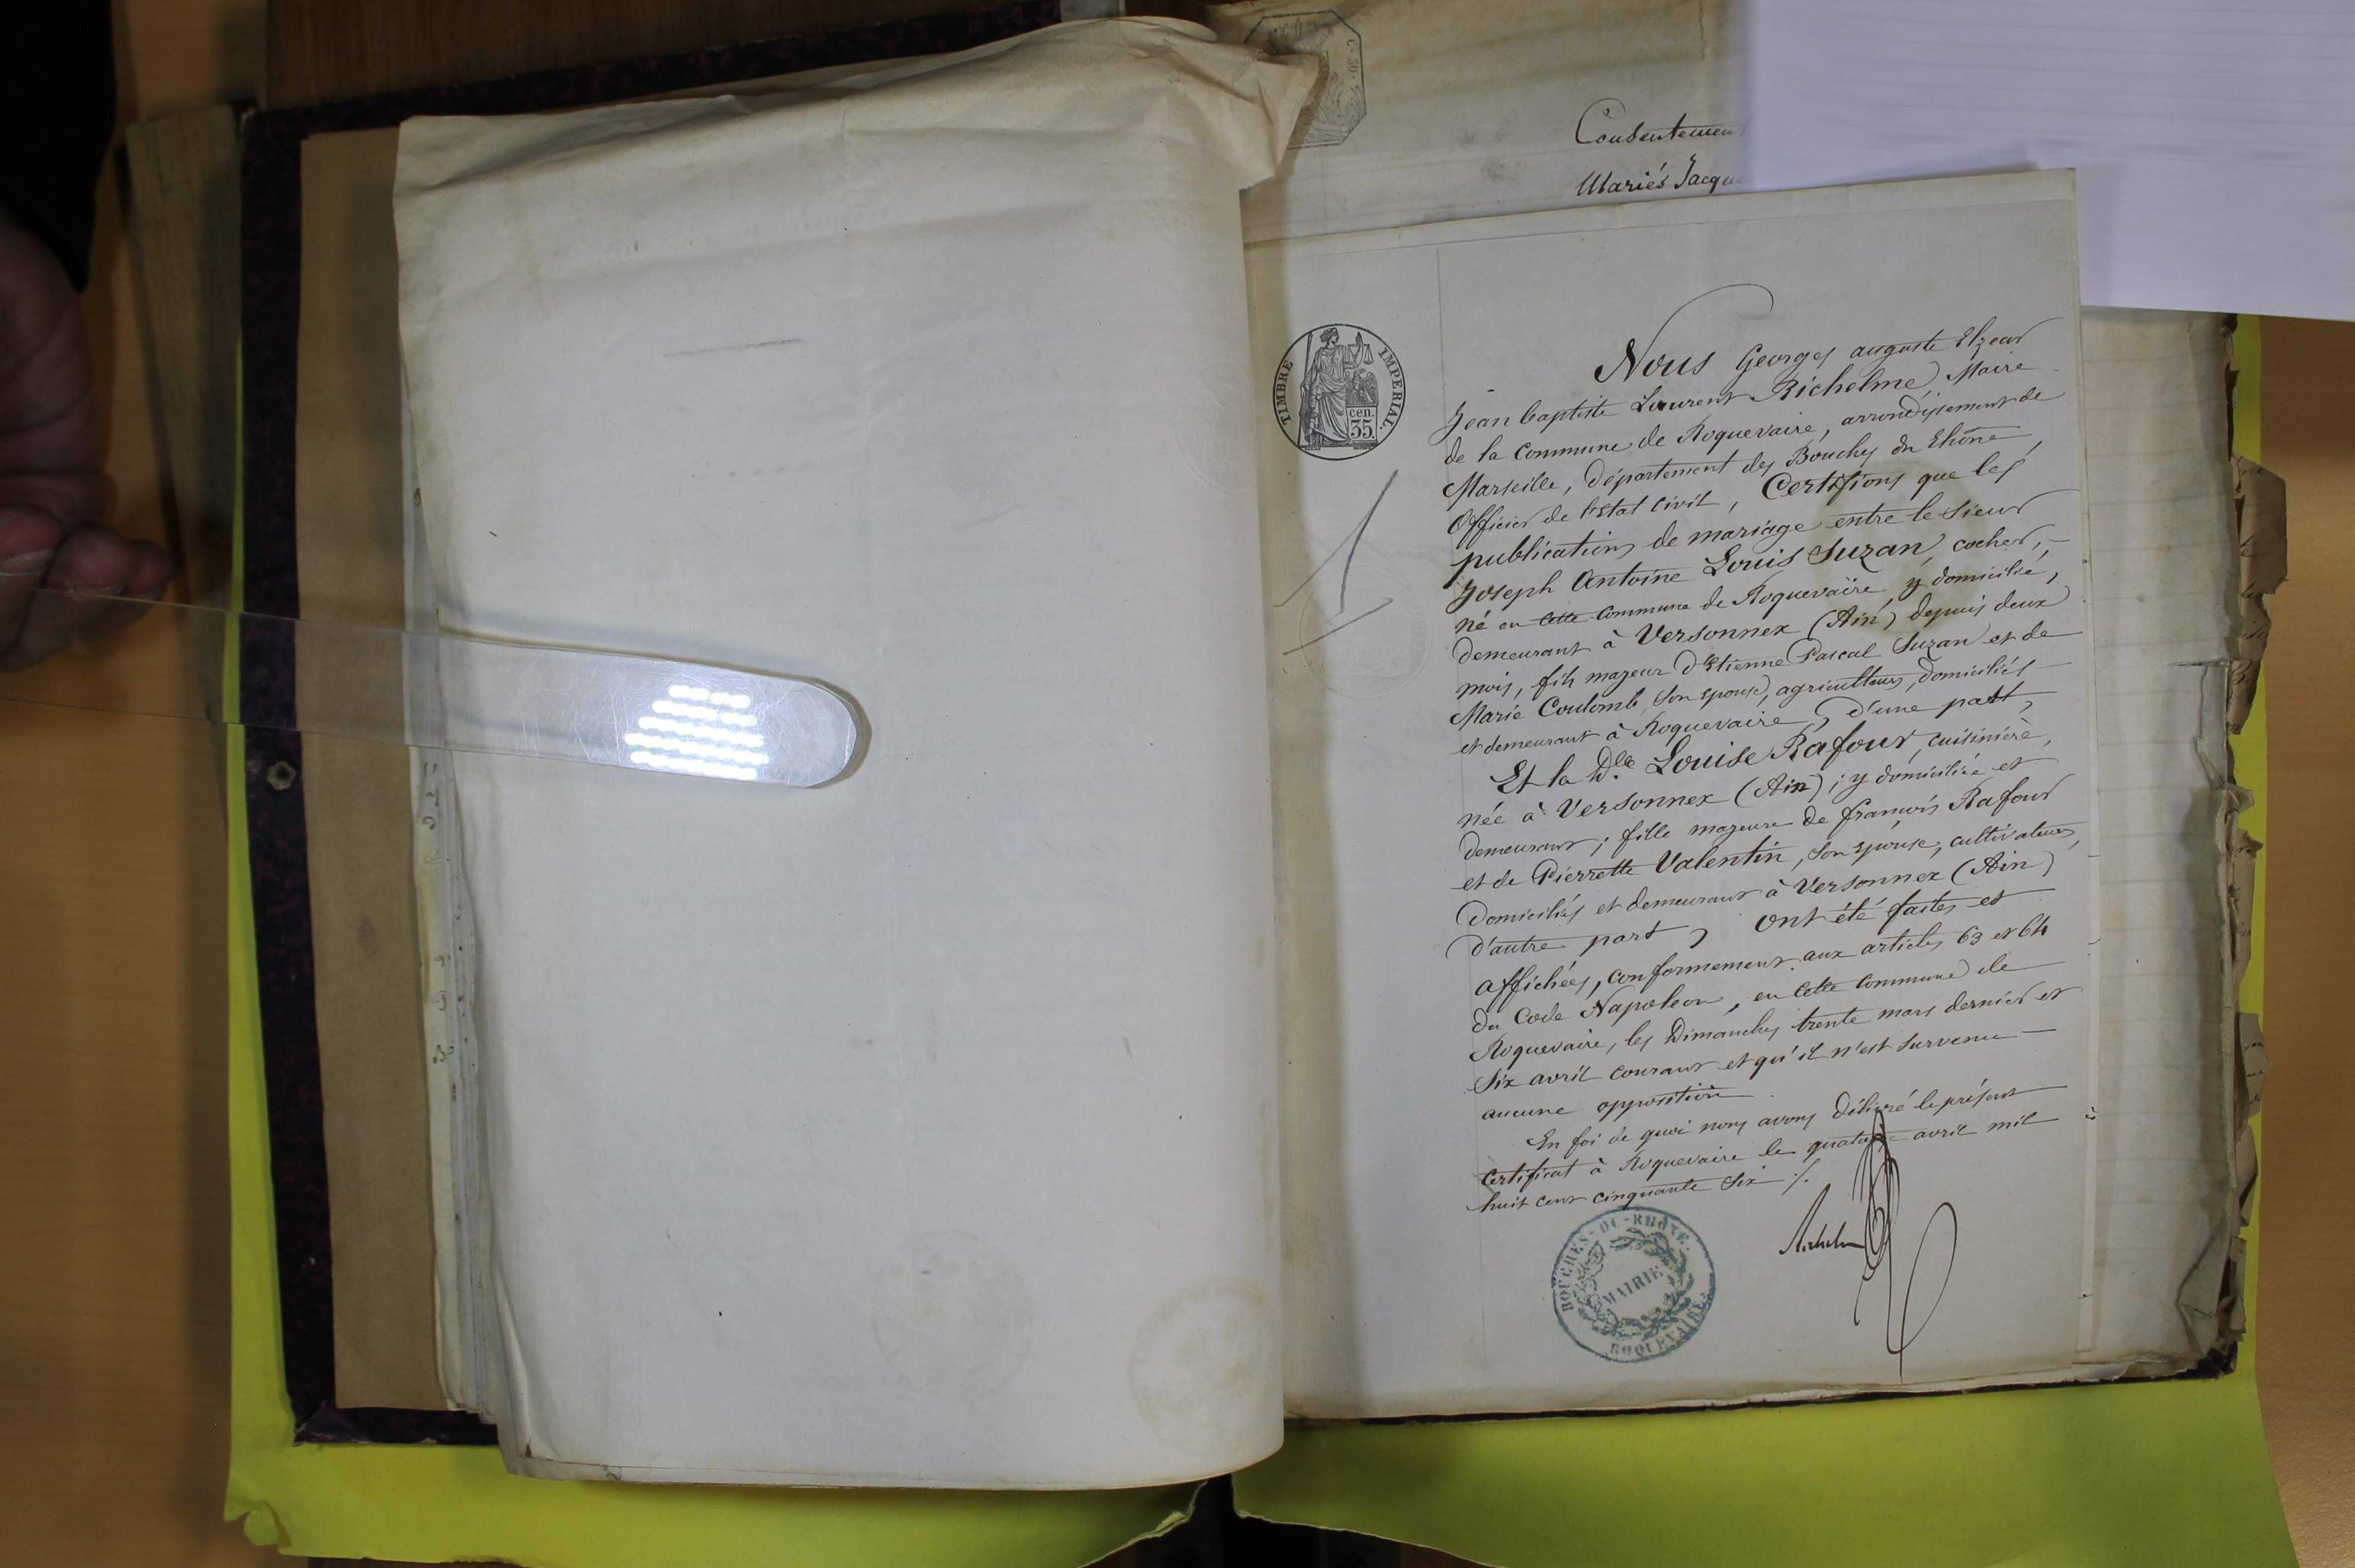 C. 50
Consentemen
Mariés Jacqu
TIMBRE IMPERIAL.
cen.
35
1
Nous Georges auguste Elzear
Jean baptiste Laurent Richelme, Maire
de la Commune de Roquevaire, arrondissement de
Marseille, département des Bouches du Rhône,
Officier de l'état civil, Certifions que les
publications de mariage entre le sieur
Joseph Antoine Louis Suzan, cocher,
né en cette commune de Roquevaire, y domicilié,
demeurant à Versonnex (Ain) depuis deux
mois, fils majeur d'Etienne Pascal Suzan et de
Marie Coulomb, son épouse, agriculteurs, domiciliés
et demeurant à Roquevaire, d'une part,
Et la Dlle Louise Rafour, cuisinière,
née à Versonnex (Ain); y domiciliée et
demeurant; fille majeure de françois Rafour
et de Pierrette Valentin, son épouse, cultivateurs,
domiciliés et demeurant à Versonnex (Ain)
d'autre part, ont été faites et
affichées, conformement aux articles 63 et 64
du Code Napoleon, en cette commune de
Roquevaire, les Dimanches trente mars dernier et
Six avril courant et qu'il n'est survenu
aucune opposition.
En foi de quoi nous avons délivré le présent
Certificat à Roquevaire le quatorze avril mil
huit cent cinquante six ./.
Richelme
BOUCHES-DU-RHÔNE.
MAIRIE
ROQUEVAIRE